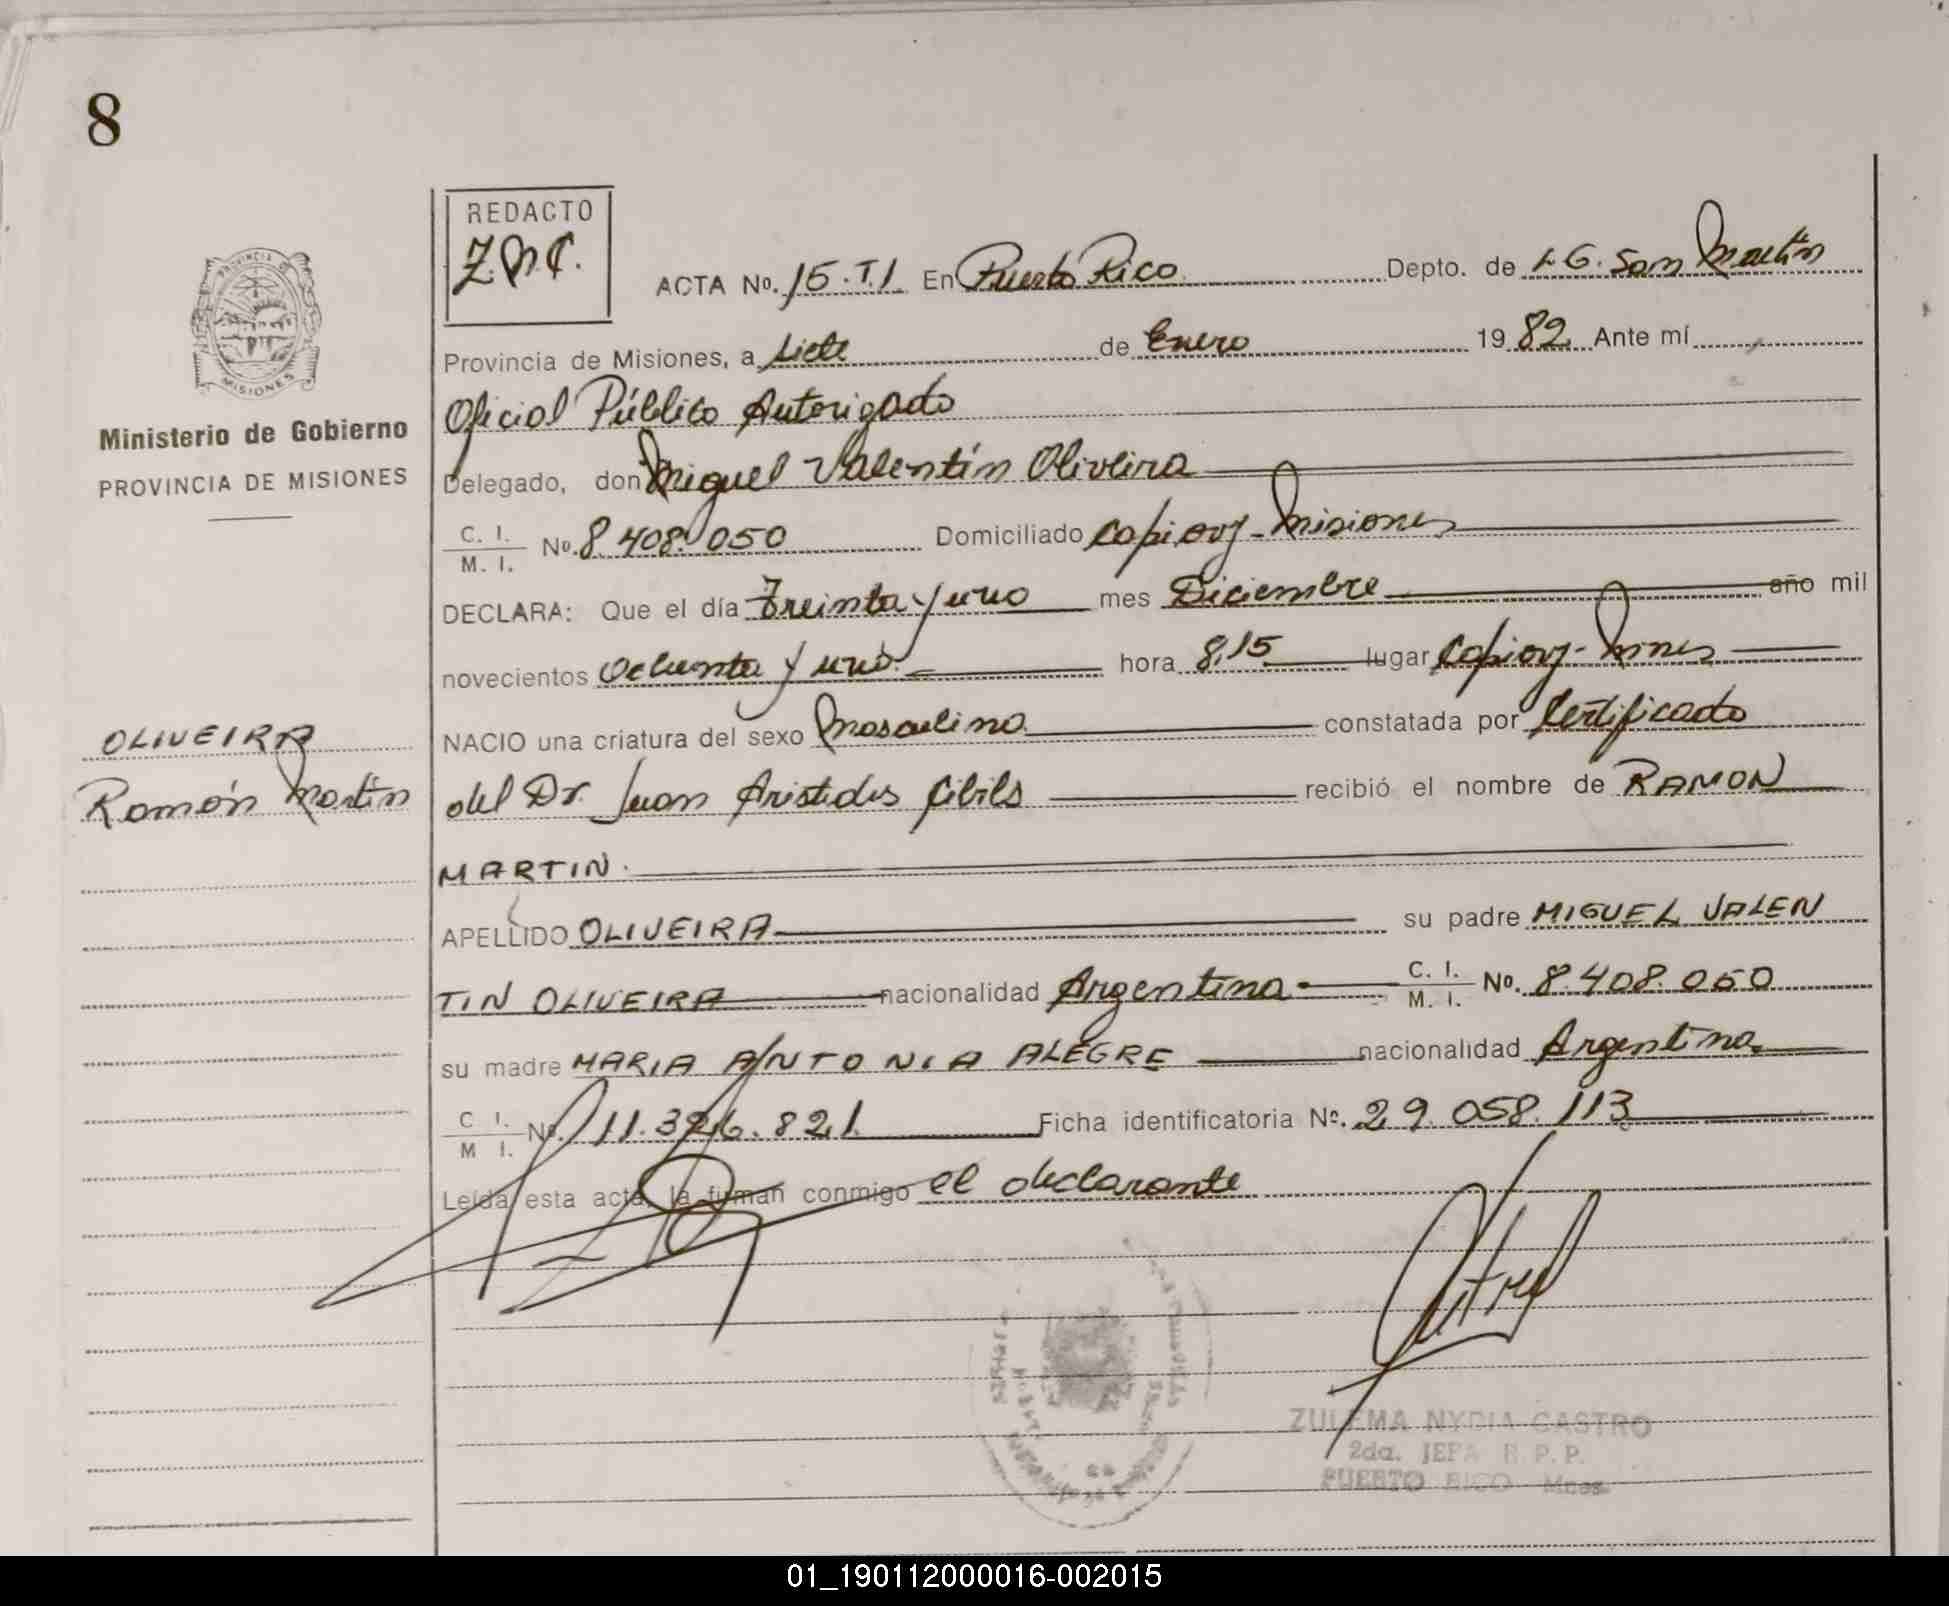 8
REDACTO
Z.N.C.
ACTA No. 15.T.I. En Puerto Rico Depto. de L.G. San Martín
Provincia de Misiones, a siete de Enero 1982 Ante mí
Oficial Público Autorizado
Ministerio de Gobierno
PROVINCIA DE MISIONES
Delegado, don Miguel Valentín Oliveira
C. I.
M. I. No. 8.408.050 Domiciliado Capiovy - Misiones
DECLARA: Que el día Treinta y uno mes Diciembre año mil
novecientos ochenta y uno. hora 8,15 lugar Capiovy - Mnes
OLIVEIRA
Ramón Martín
NACIO una criatura del sexo Masculino constatada por Certificado
del Dr. Juan Aristides Cibils recibió el nombre de RAMON
MARTIN.
APELLIDO OLIVEIRA su padre MIGUEL VALEN
TIN OLIVEIRA nacionalidad Argentina C. I.
M. I. No. 8.408.050
su madre MARIA ANTONIA ALEGRE nacionalidad Argentina
C. I.
M. I. No. 11.326.821 Ficha identificatoria Nº. 29.058.113
Leída esta acta, la firman conmigo el declarante
ZULEMA NYDIA CASTRO
2da. JEFA R. P. P.
PUERTO RICO Mnes
01_190112000016-002015